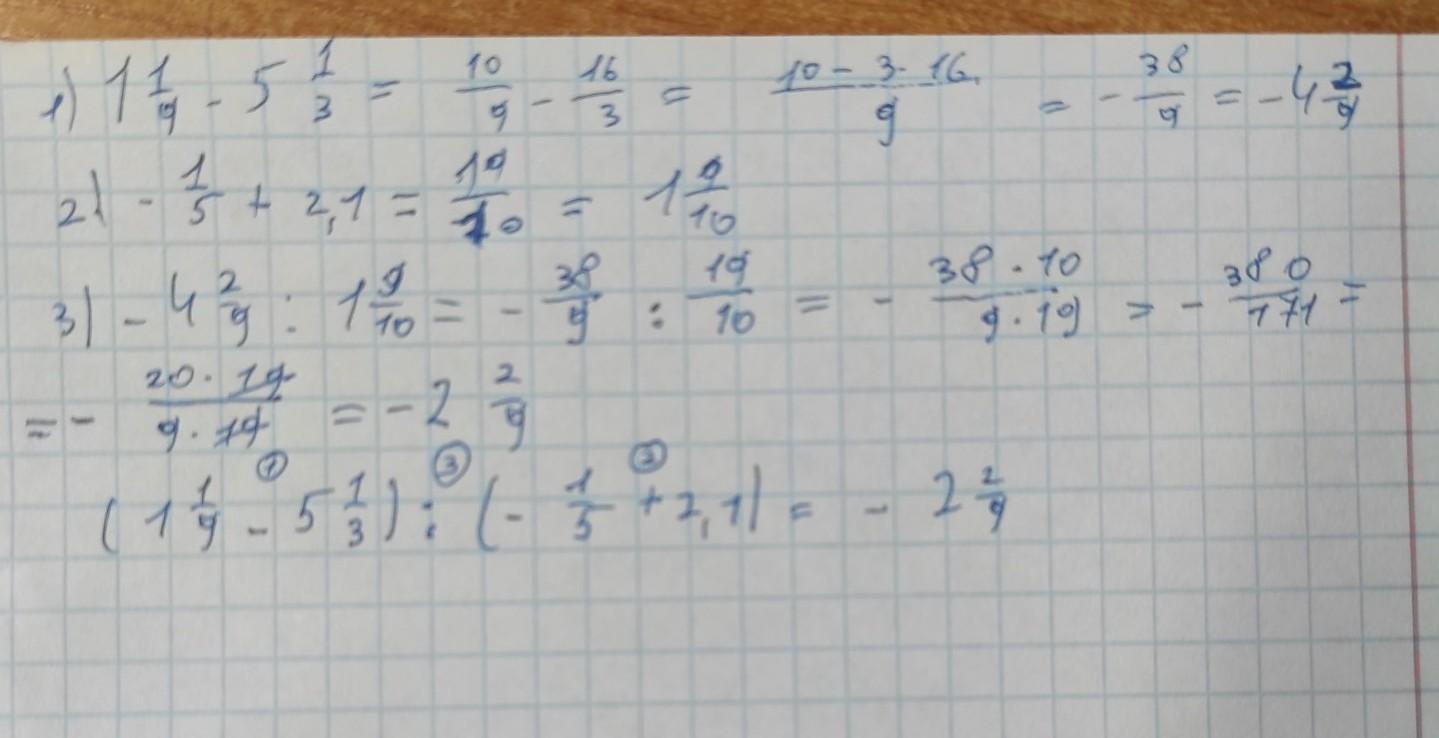 1) 1 1/9 - 5 1/3 = 10/9 - 16/3 = (10 - 3 · 16)/9 = - 38/9 = - 4 2/9
2) - 1/5 + 2,1 = 19/10 = 1 9/10
3) - 4 2/9 : 1 9/10 = - 38/9 : 19/10 = - (38 · 10)/(9 · 19) = - 380/171 =
= - (20 · 19)/(9 · 19) = - 2 2/9
① ③ ②
(1 1/9 - 5 1/3) : (- 1/5 + 2,1) = - 2 2/9